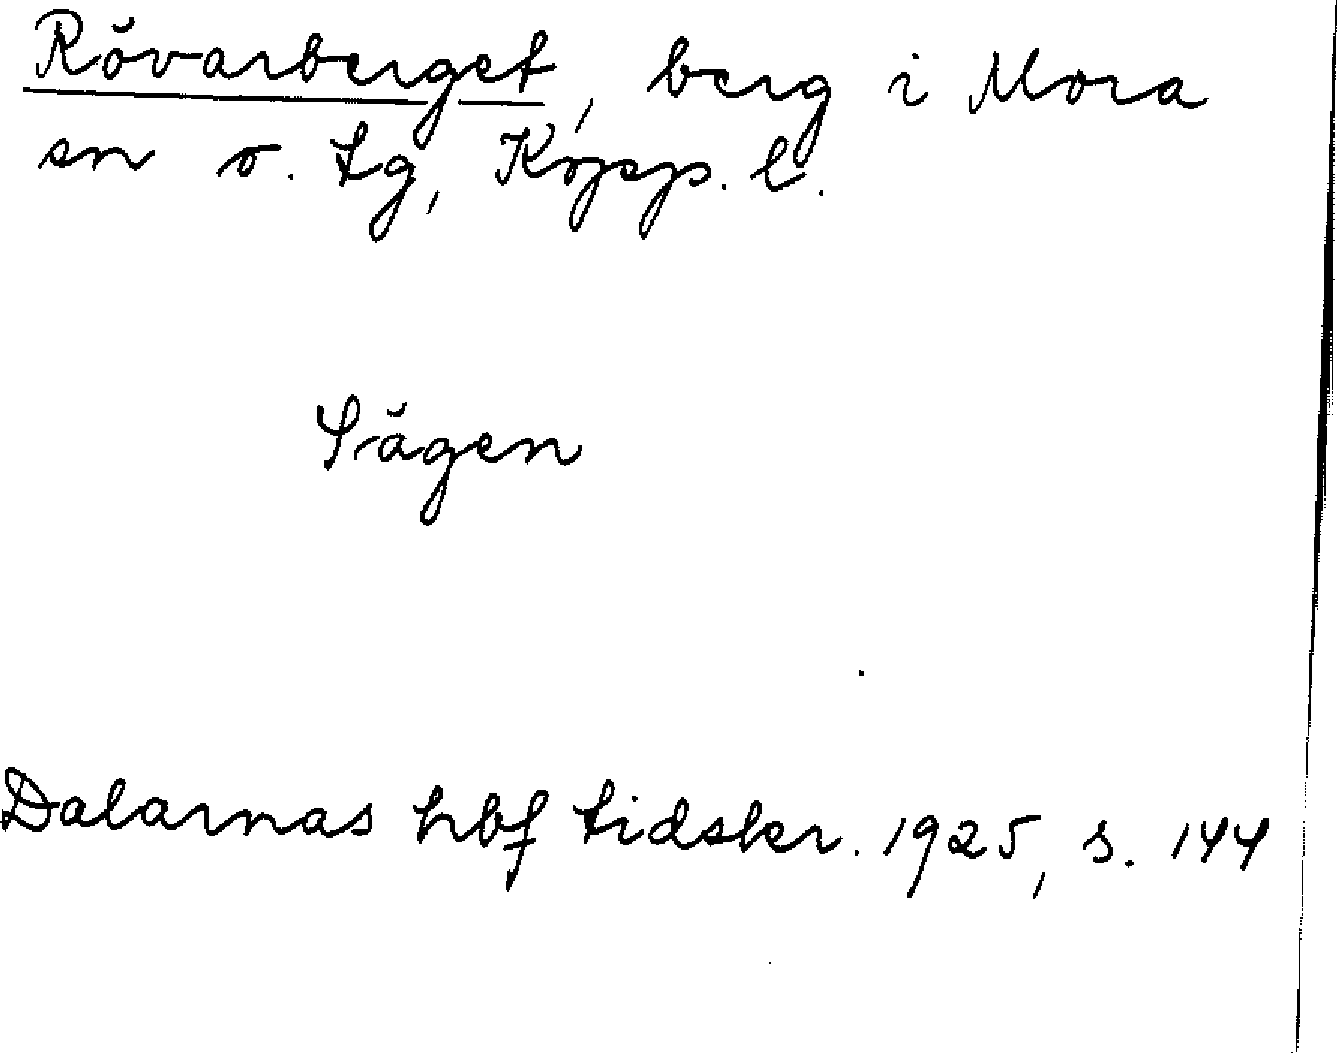 Rövarberget, berg i Mora
sn o. tg, Kopp. l.
Sägen
Dalarnas hbf tidskr. 1925, s. 144